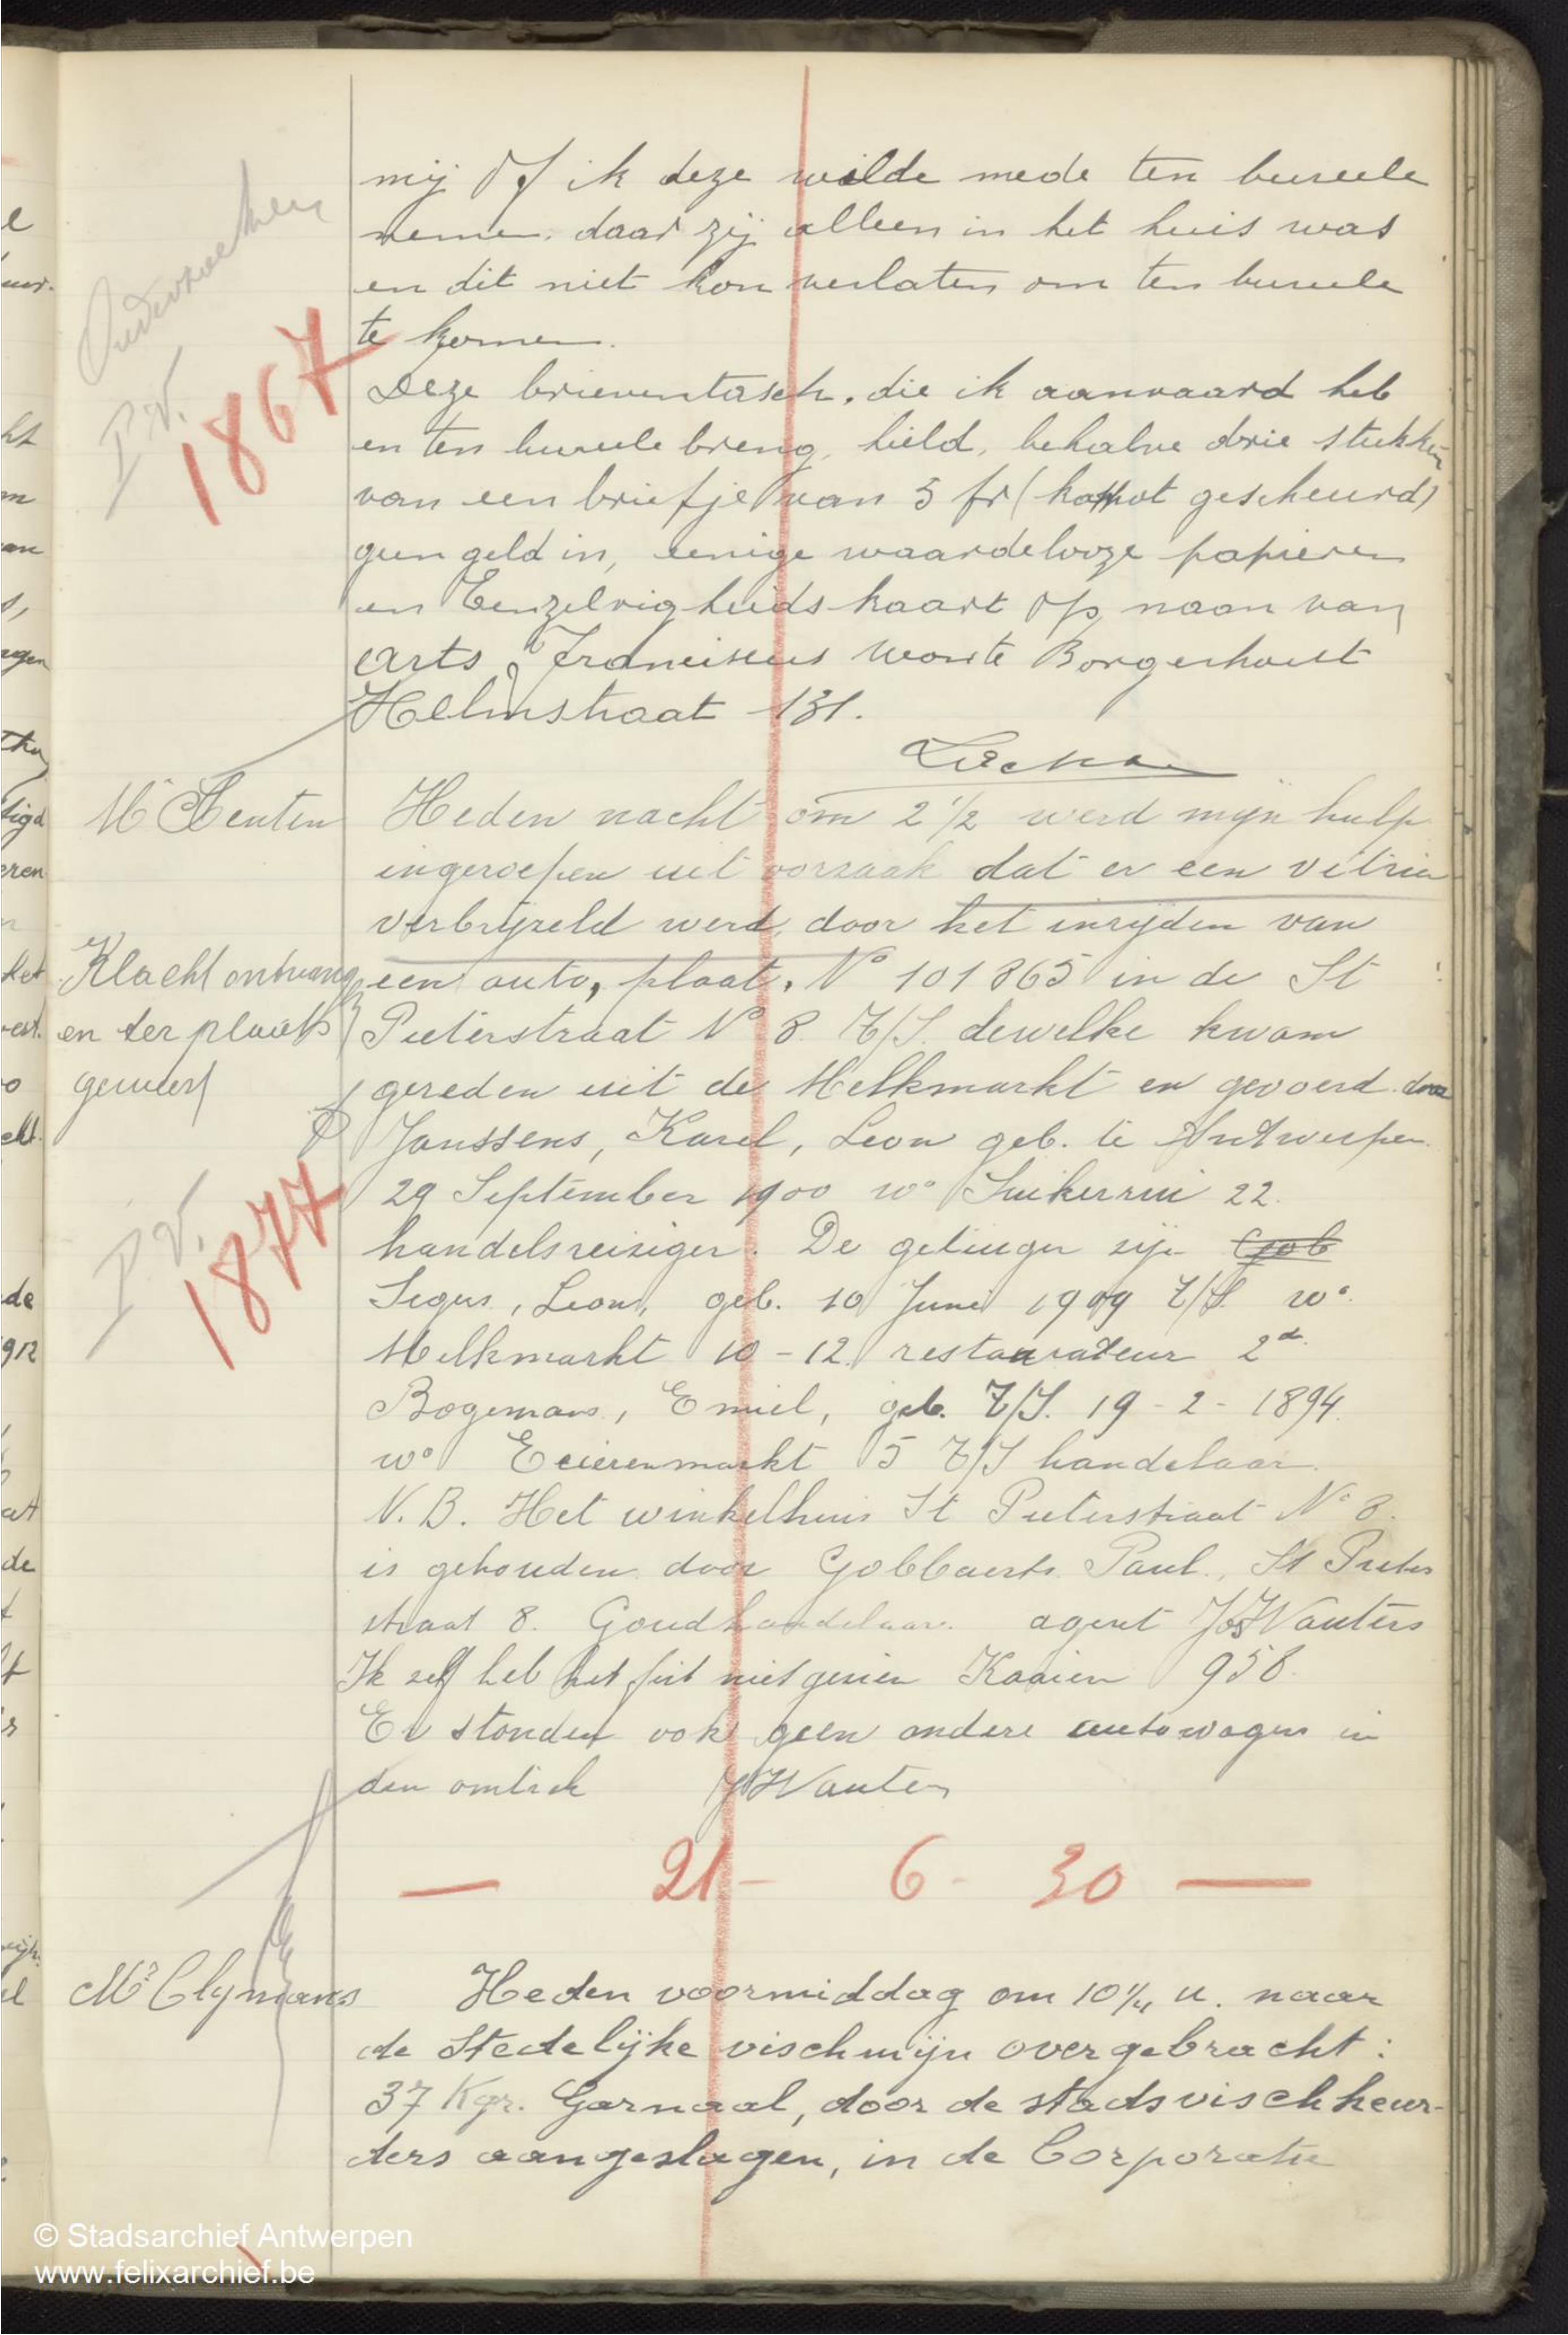 mij of ik deze wilde mede ten bureele
nemen. daar zij alleen in het huis was
en dit niet kon verlaten om ten bureele
te komen.
Onderzoeken
P.V.
1867
Deze brieventasch. die ik aanvaard heb
en ten bureele breng, hield, behalve drie stukken
van een briefje van 5 fr (kapot gescheurd)
geen geld in, eenige waardelooze papieren
en Eenzelvigheidskaart op naam van
Arts, Franciscus woonte Borgerhout
Helmstraat 131.
Mr Stenten
Heden nacht om 2 1/2 werd mijn hulp
ingeroepen uit oorzaak dat er een vitrien
verbrijzeld werd, door het inrijden van
Klacht ontvangen
en ter plaats
geweest
een auto, plaat. No 101865 in de St
Pieterstraat No 8. T/S. dewelke kwam
gereden uit de Melkmarkt en gevoerd door
Janssens, Karel, Leon geb. te Antwerpen
P.V.
1877
29 September 1900 wo Suikerrui 22.
handelsreiziger. De getuigen zijn Gob
Segers, Leon, geb. 10 Juni 1909 T/S. wo.
Melkmarkt 10-12 restaurateur 2de
Bogemans, Emiel, geb. T/S. 19-2-1894.
wo Eeierenmarkt 5 T/S handelaar.
N.B. Het winkelhuis St Pieterstraat No 8.
is gehouden door Gobbaerts Paul., St Pieter
straat 8. Goudhandelaar. agent Jos Wauters
Ik zelf heb het feit niet gezien Kaaien 958.
Er stonden ook geen andere autowagens in
den omtrek JWauters
— 21 - 6 - 30 —
Mr Clymans
Heden voormiddag om 10 1/4 u. naar
de Stedelijke vischmijn overgebracht:
37 Kgr. Garnaal, door de stadsvischkeur-
ders aangeslagen, in de Corporatie
© Stadsarchief Antwerpen
www.felixarchief.be